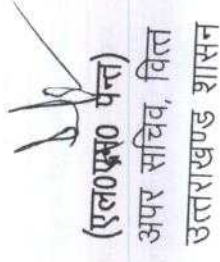 (एल०एम० पन्त)
अपर सचिव, वित्त
उत्तराखण्ड शासन